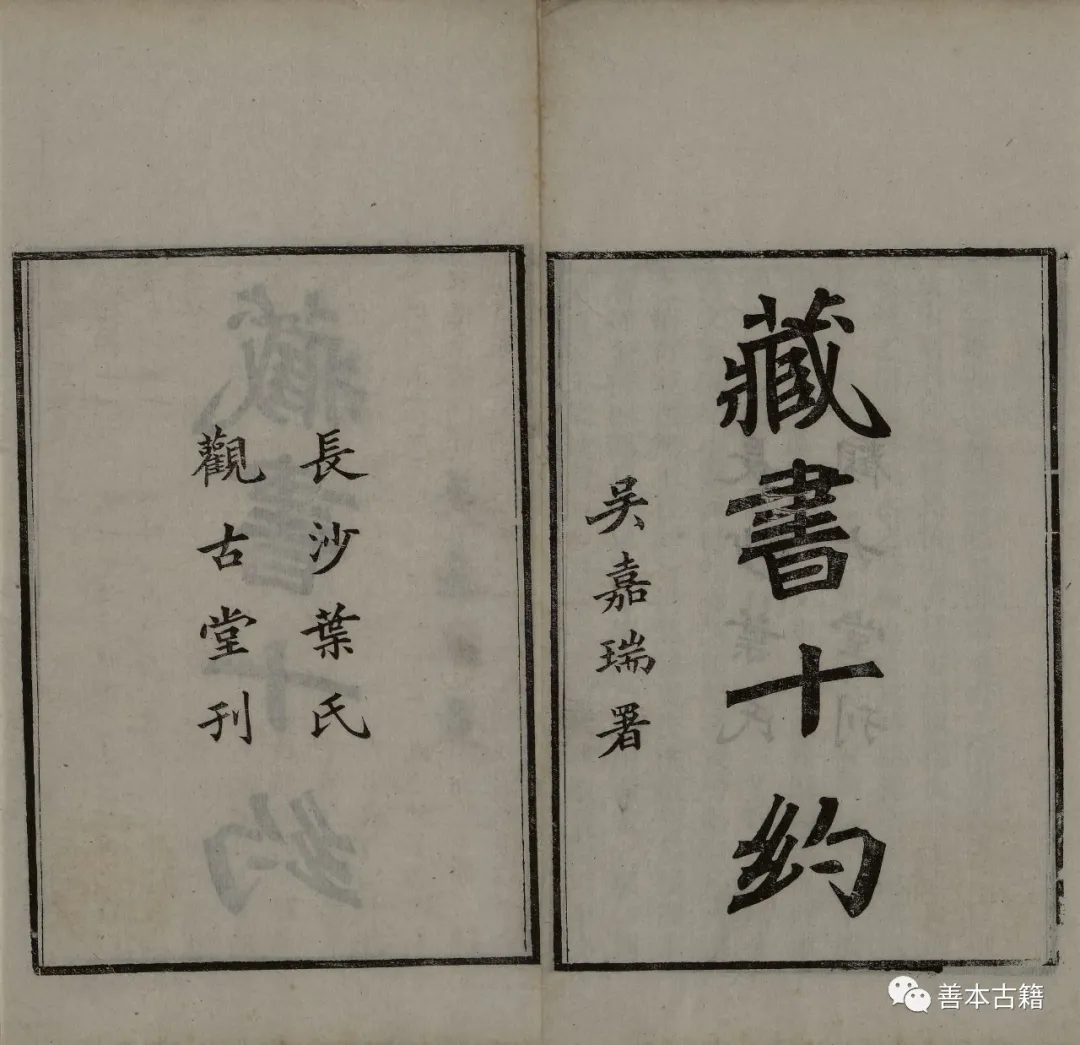 藏書十約
吴嘉瑞署
長沙葉氏
觀古堂刊
善本古籍